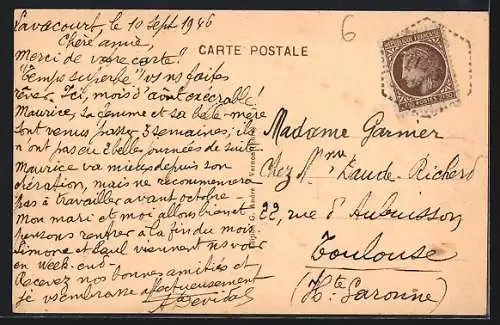 Lavacourt, le 10 Sept 1946
Chère amie,
Merci de votre carte!
"Temps superbe" vs ns faites
rêver. Ici, mois d'août exécrable!
Maurice, sa femme et sa belle-mère
sont venus passer 3 semaines; ils
n'ont pas eu 2 belles journées de suite.
Maurice va mieux depuis son
opération, mais ne recommencera
pas à travailler avant octobre.
Mon mari et moi allons bien et
pensons rentrer à la fin du mois.
Simone et Paul viennent ns voir
en week-end.
Recevez nos bonnes amitiés et
je vs embrasse affectueusement
CARTE POSTALE
6
RÉPUBLIQUE FRANÇAISE
Madame Garnier
Chez Mme Claude-Richard
22, rue d'Aubuisson
Toulouse
(Hte Garonne)